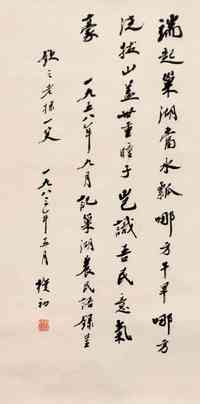 端起巢湖當水瓢哪方干旱哪方
浇拔山盖世重瞳子岂識吾民意氣
豪 一九五八年九月記巢湖農民語録呈
之老棣一笑 一九八三年五月 樸初